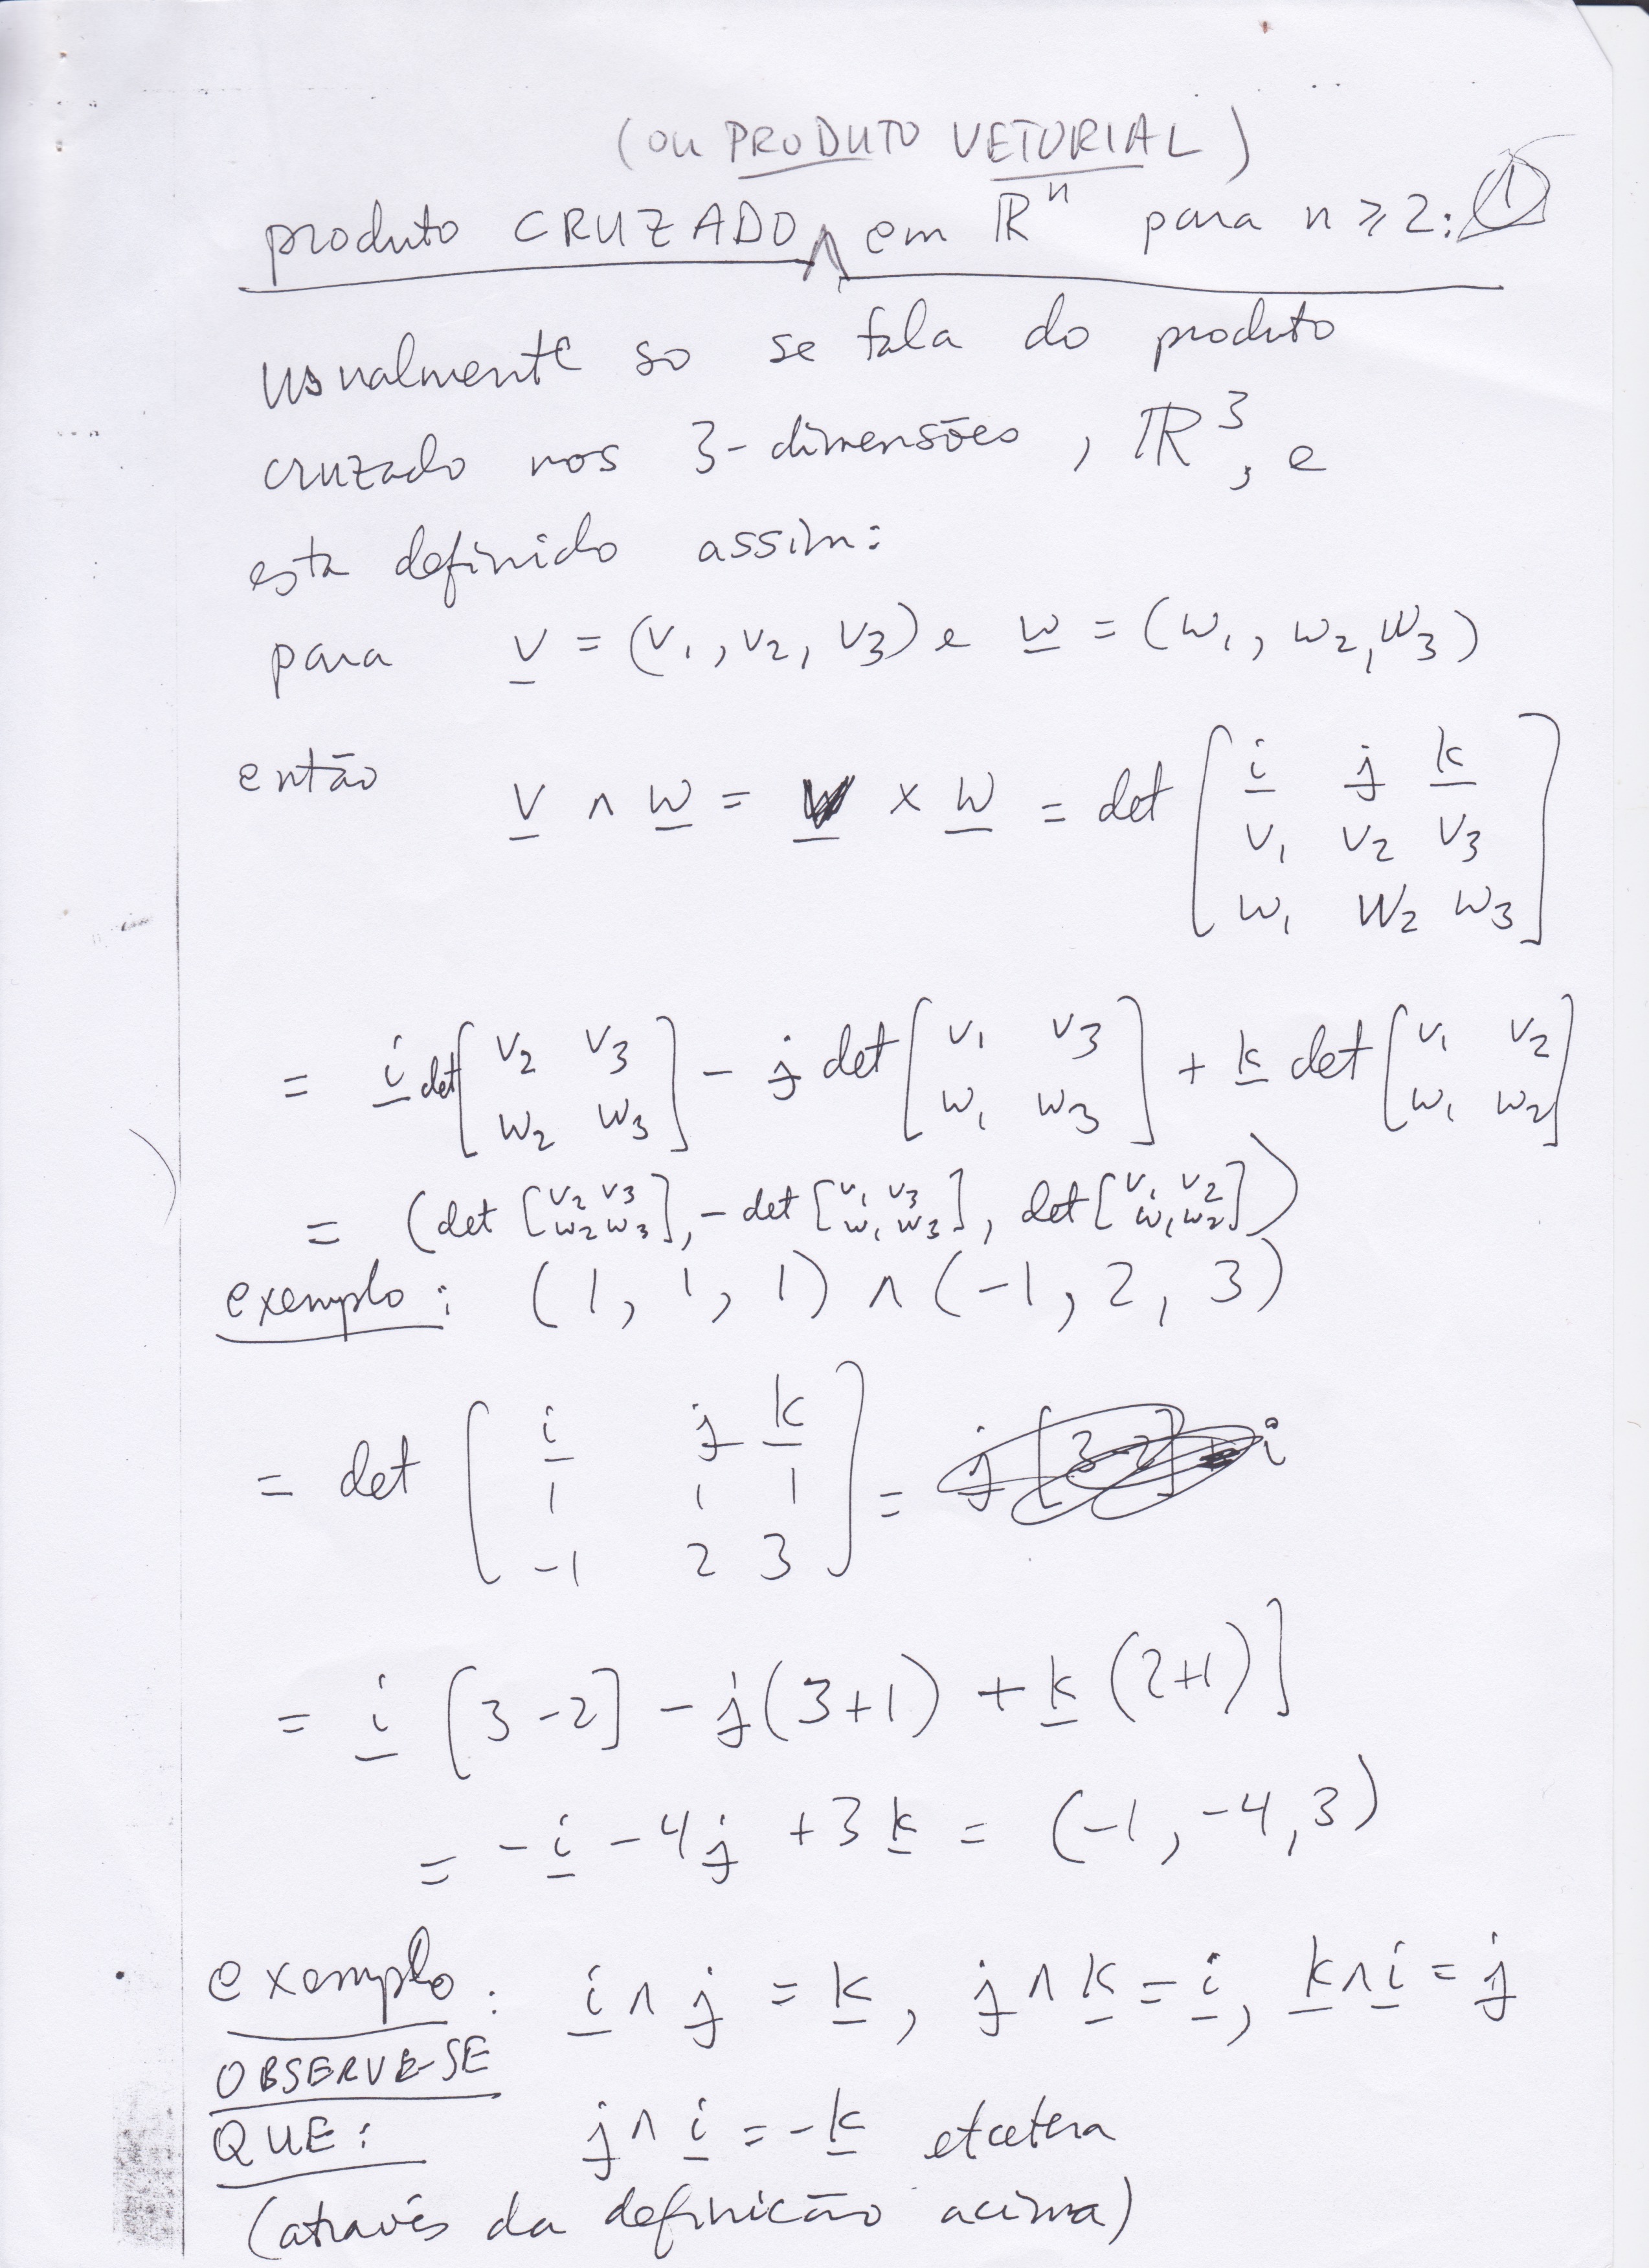 (ou PRODUTO VETORIAL)
produto CRUZADO ∧ em ℝⁿ para n ≥ 2: 1
usualmente so se fala do produto
cruzado nos 3-dimensões, ℝ³, e
esta definido assim:
para v = (v₁, v₂, v₃) e w = (w₁, w₂, w₃)
então v ∧ w = v × w = det [ i j k
v₁ v₂ v₃
w₁ w₂ w₃ ]
= i det [ v₂ v₃ ; w₂ w₃ ] - j det [ v₁ v₃ ; w₁ w₃ ] + k det [ v₁ v₂ ; w₁ w₂ ]
= (det [ v₂ v₃ ; w₂ w₃ ], - det [ v₁ v₃ ; w₁ w₃ ], det [ v₁ v₂ ; w₁ w₂ ])
exemplo: (1, 1, 1) ∧ (-1, 2, 3)
= det [ i j k
1 1 1
-1 2 3 ] =
= i [3-2] - j(3+1) + k (2+1)]
= -i - 4j + 3k = (-1, -4, 3)
exemplo: i ∧ j = k, j ∧ k = i, k ∧ i = j
OBSERVE-SE
QUE: j ∧ i = -k etcetera
(através da definicão acima)